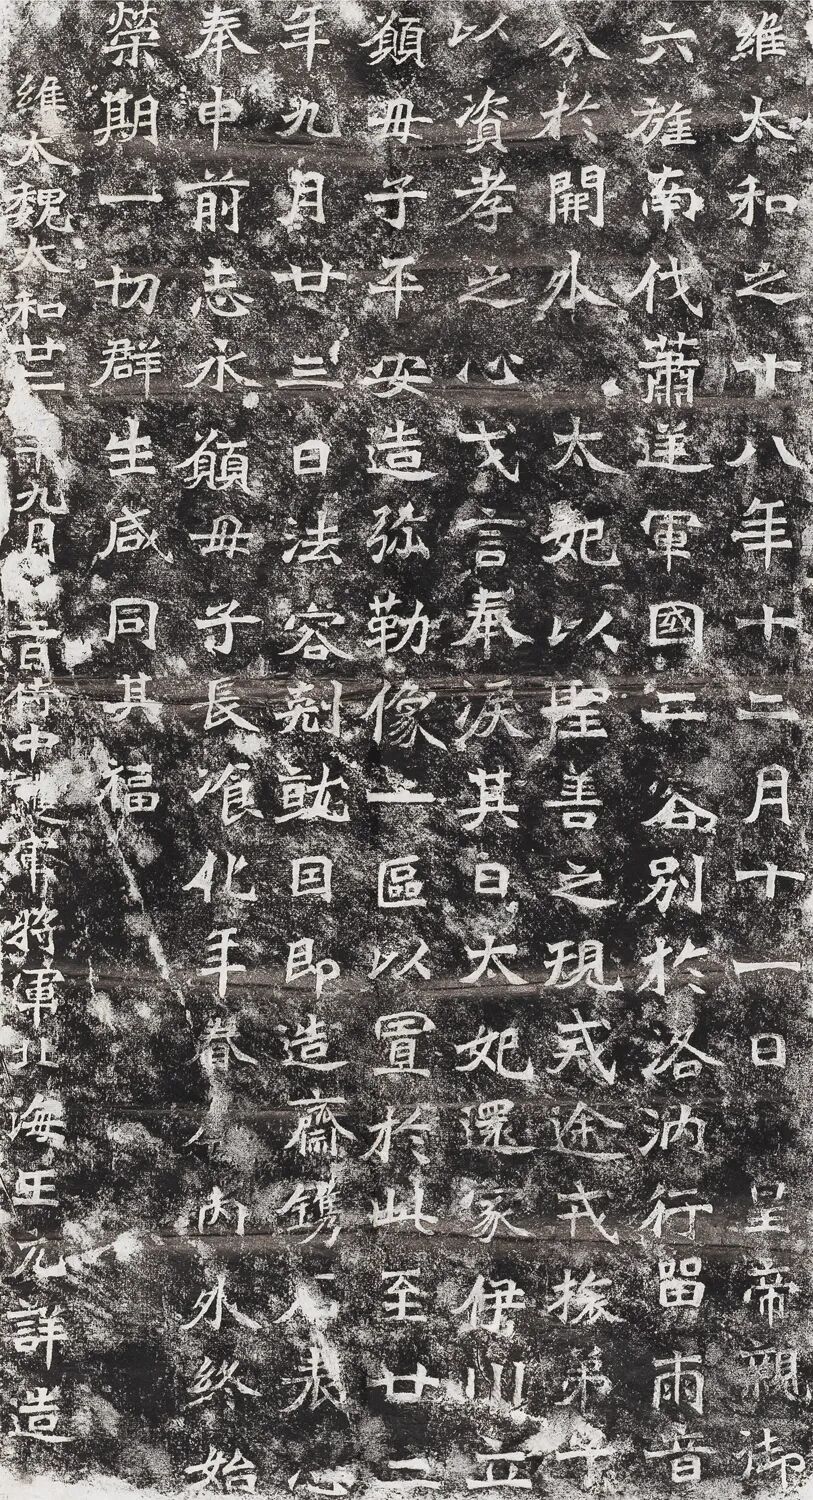 維太和之十八年十二月十一日 皇帝親御
六旌南伐蕭逆軍國二容別於洛汭行留兩音
分於闕外 太妃以聖善之規戒途戎旅弟子
以資孝之心戈言奉淚其日太妃還家伊川立
願毋子平安造弥勒像一區以置於此至廿二
年九月廿三日法容剋就因即造齋鐫石表心
奉申前志永願毋子長飡化年眷內外終始
榮期一切群生咸同其福
維太魏太和廿二年九月三日侍中護軍將軍北海王元詳造